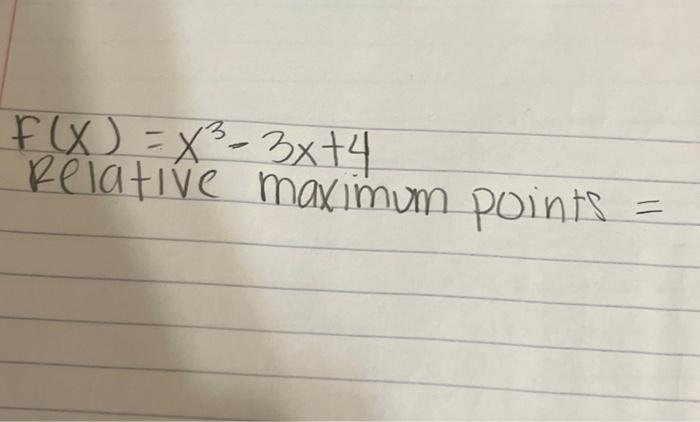 F(X) = x³ - 3x+4
Relative maximum points =